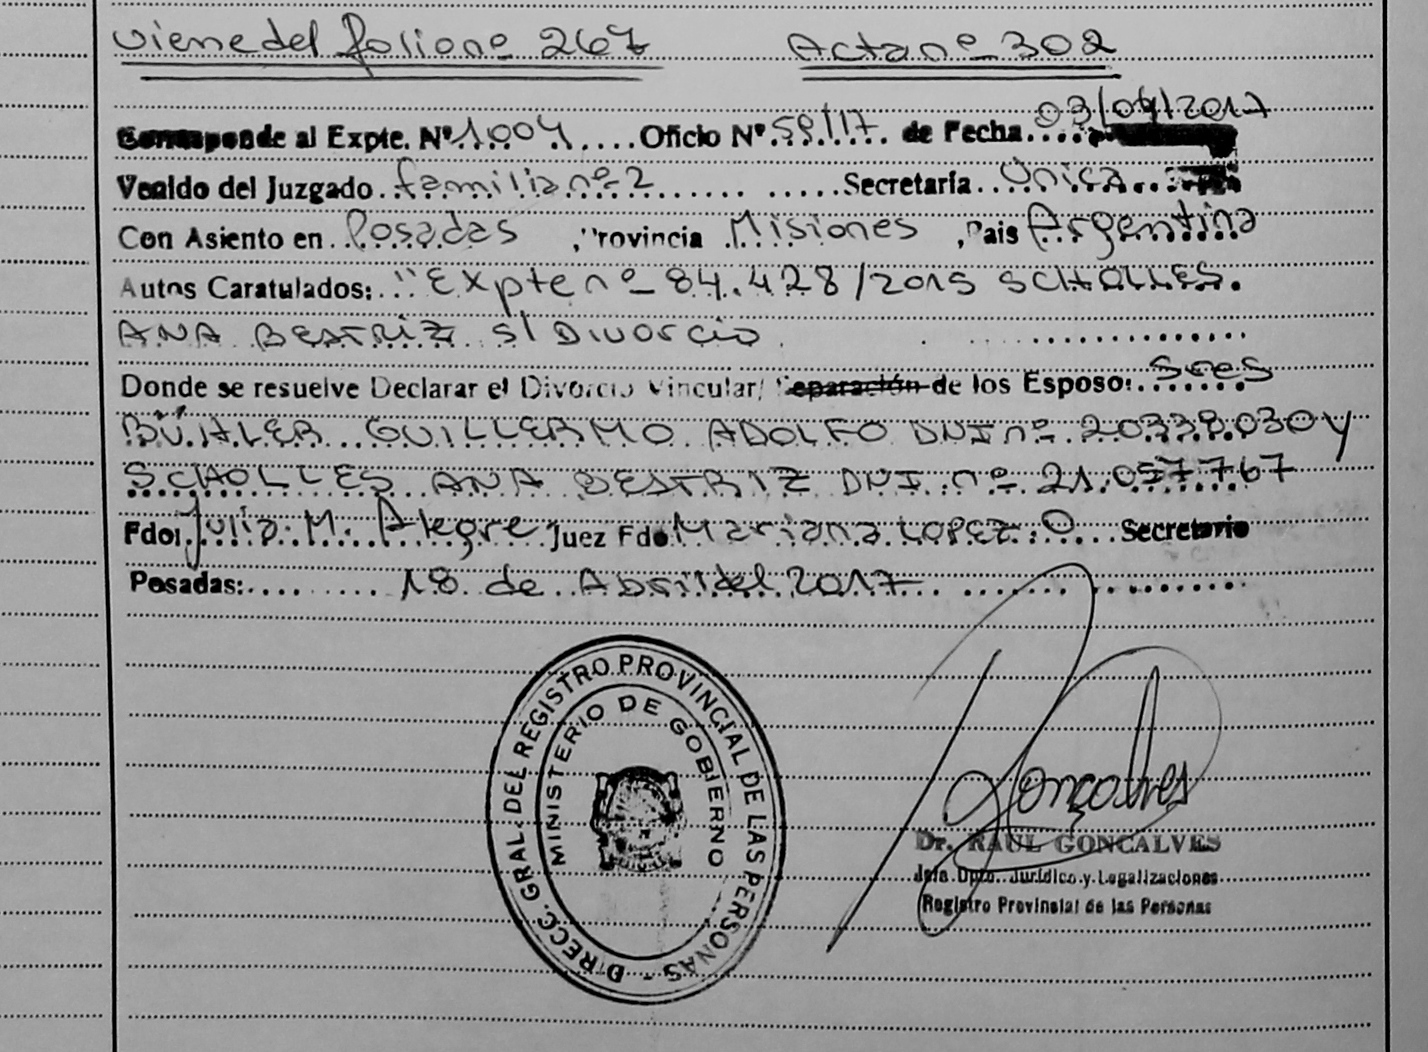 viene del folio nº 267 Acta nº 302
Corresponde al Expte. Nº 1004 Oficio Nº 59/17 de Fecha 03/04/2017
Venido del Juzgado familia nº 2 Secretaría Única
Con Asiento en Posadas, Provincia Misiones, Pais Argentina
Autos Caratulados: "Expte nº 84.428/2015 SCHOLLES.
ANA BEATRIZ s/ Divorcio
Donde se resuelve Declarar el Divorcio Vincular/ Separación de los Esposo: Sres
BÜHLER GUILLERMO ADOLFO DNI nº 20.338.030 y
SCHOLLES ANA BEATRIZ DNI nº 21.057.767
Fdo: Julia M. Alegre Juez Fdo Mariana Lopez. O Secretario
Posadas: 18 de Abril del 2017
DIRECC. GRAL. DEL REGISTRO PROVINCIAL DE LAS PERSONAS -
MINISTERIO DE GOBIERNO
Gonçalves
Dr. RAUL GONCALVES
Jefe Dpto. Jurídico y Legalizaciones
Registro Provincial de las Personas